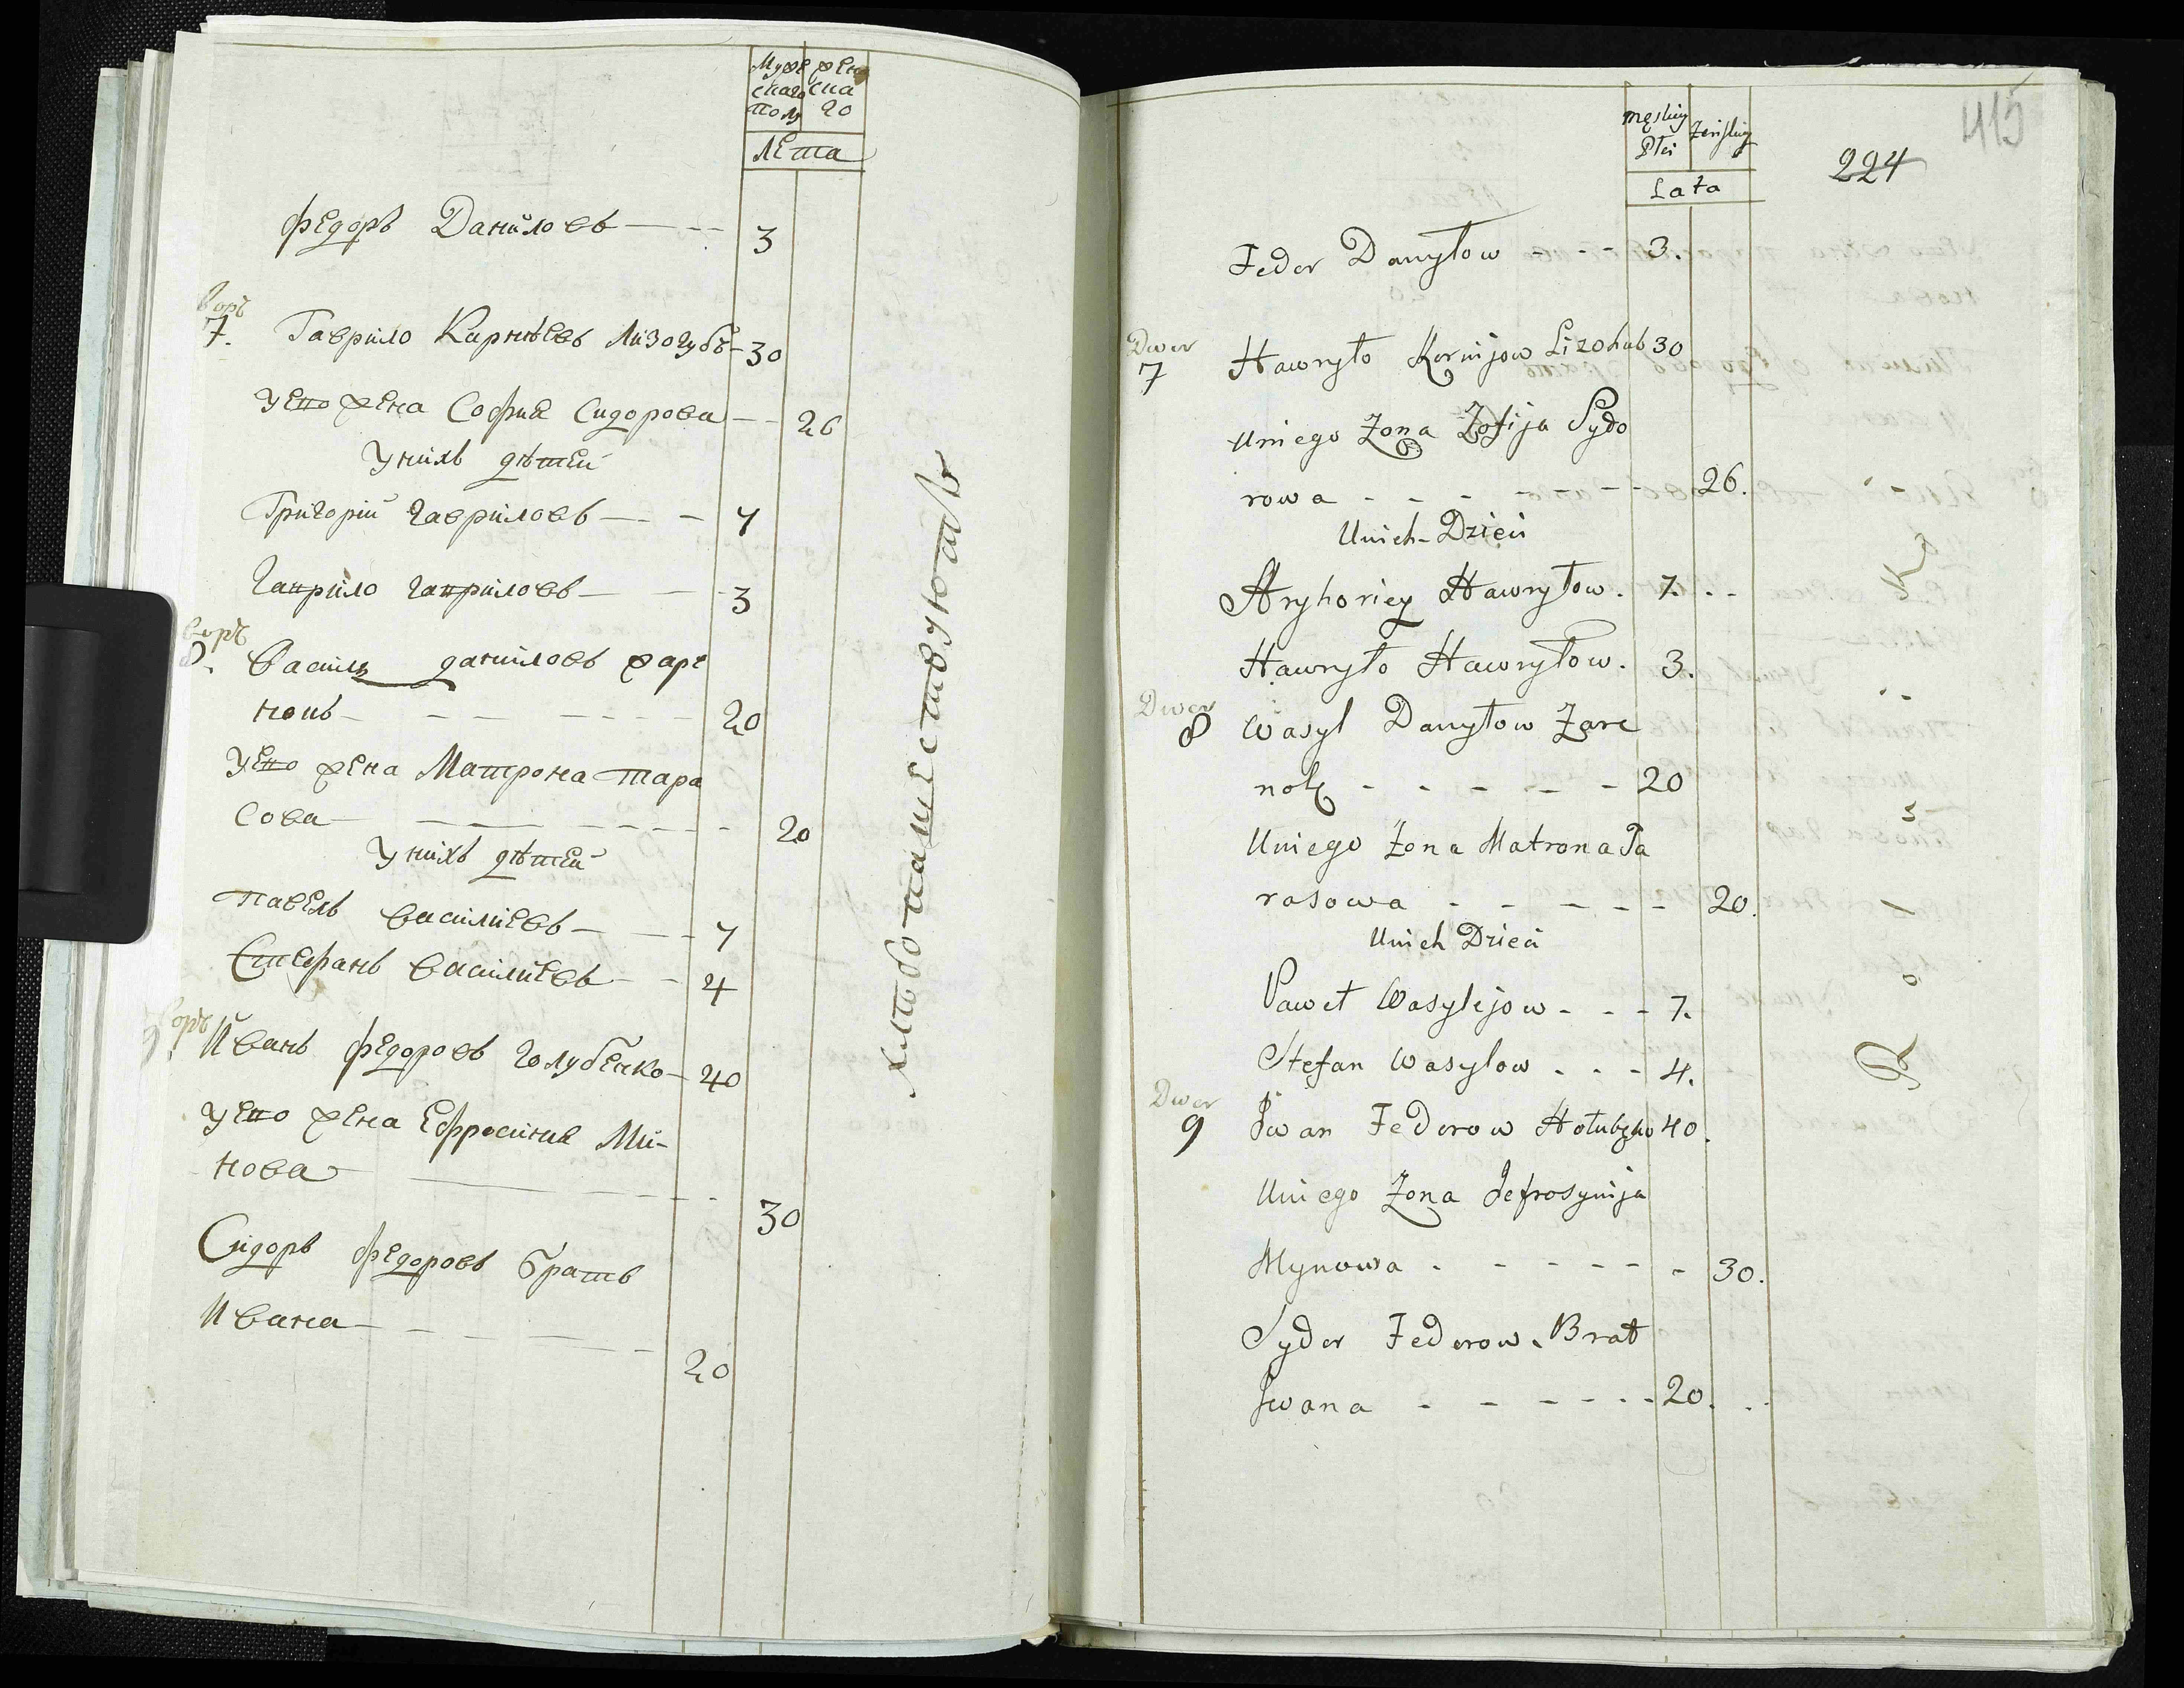 Муже жен
скаго ска
полу го
Лета
Федоръ Даниловъ — — - 3
воръ
7. Гаврило Карнѣевъ Лизогубъ - 30
У его жена София Сидорова — - 26
У нихъ дѣтей
Григорий Гавриловъ — - — 7
Гаврило Гавриловъ — — - 3
воръ
8. Василь Даниловъ жаре
нокъ — - — — - - - - 20
У его жена Матрона Тара
сова — — — - - - - 20
У нихъ дѣтей
Павелъ Василиевъ — - — - 7
Стефанъ Василиевъ — - - 4
воръ
9. Иванъ Федоровъ Голубенко — 40
У его жена Ефросиния Ми-
нова — — - - - - 30
Сидоръ Федоровъ братъ
Ивана — - - — — - 20
хлѣбопашествуютъ
męskiey Płci
żenskiey
Lata
415
224
Fedor Danyłow - - - 3.
Dwor
7 Hawryło Kornijow Lizohub 30
Uniego Żona Zofija Sydo
rowa - - - - - - - 26.
Unich Dzieci
Hryhoriey Hawryłow. 7. . -
Hawryło Hawryłow. 3.
Dwor
8 Wasyl Danyłow Żare
nok - - - - - - 20
Uniego Żona Matrona Ta
rasowa - - - - - 20.
Unich Dzieci
Paweł Wasylejow - - - 7.
Stefan Wasylow . - - 4.
Dwor
9 Iwan Fedorow Hołubęko 40.
Uniego Żona Jefrosynija
Mynowa - - - - - - 30.
Sydor Fedorow. Brat
Iwana - - - - - - 20. . .